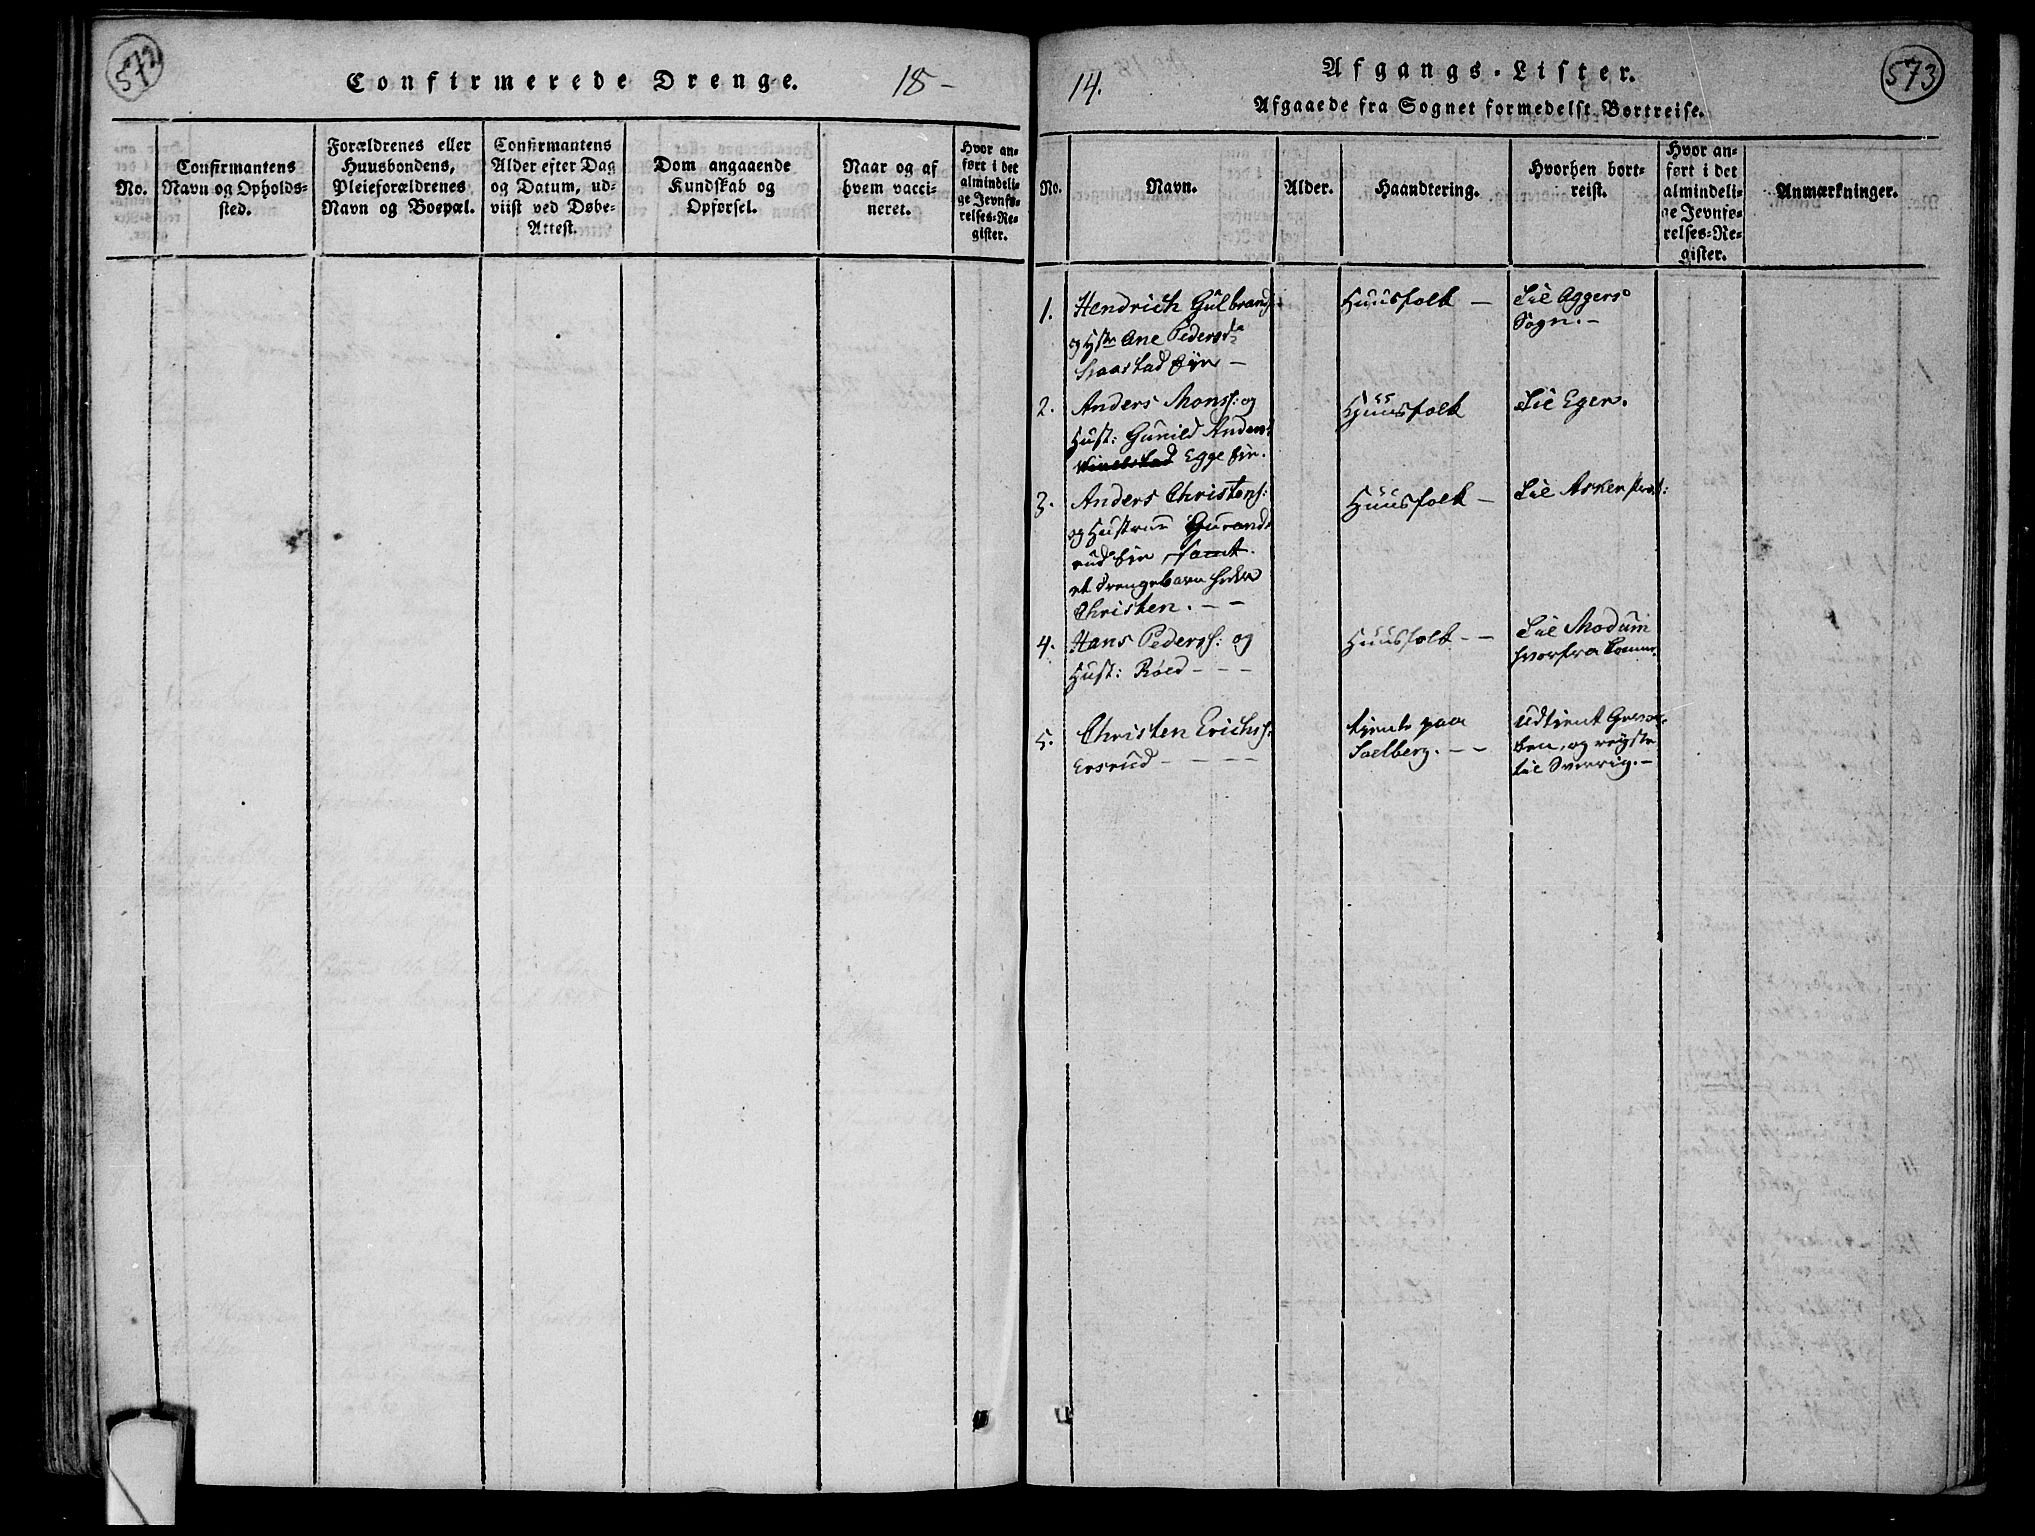 572
Confirmerede Drenge.
18-
No.
Confirmantens
Navn og Opholds-
sted.
Forældrenes eller
Huusbondens,
Pleieforældrenes
Navn og Boepæl.
Confirmantens
Alder efter Dag
og Datum, ud-
viist ved Døbe-
Attest.
Dom angaaende
Kundskab og
Opførsel.
Naar og af
hvem vacci-
neret.
Hvor an-
ført i det
almindeli-
ge Jevnfø-
relses-Re-
gister.
14.
Afgangs-Lister.
573
Afgaaede fra Sognet formedelst Bortreise.
No.
Navn.
Alder.
Haandtering.
Hvorhen bort-
reist.
Hvor an-
ført i det
almindeli-
ge Jevnfø-
relses-Re-
gister.
Anmærkninger.
1.
Hendrich Gulbrands:
og Hstr Ane Pedersd
Eje
Huusfolk -
Til Aggers
Sogn.-
2.
Anders Mons: og
Hust: Gunild Anders
Egge Eje.
Huusfolk
Til Eger.
3.
Anders Christens:
og Hustrue Gurands
rud Eje samt
et drengebarn
Christen. - -
Huusfolk -
Til Asker
4.
Hans Peders: og
Hust: Røed - - -
Huusfolk - -
Til Modum
hvorfra
5.
Christen Erichs:
Ersrud - - - -
tjente paa
Solberg. - -
Udtjent
og reyste
til Sverrig.-